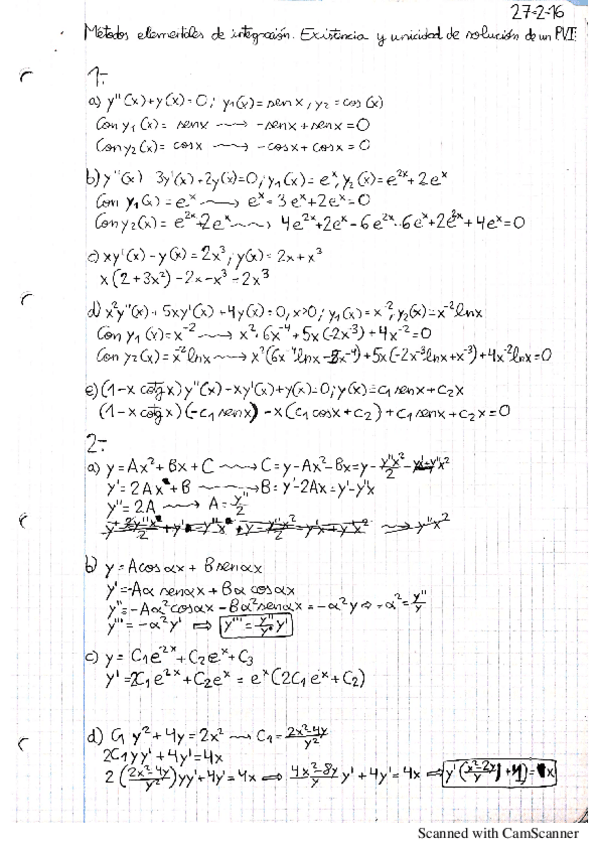 27-2-16
Métodos elementales de integración. Existencia y unicidad de solución de un PVI:
1.-
a) y''(x)+y(x)=0; y₁(x)=sen x, y₂=cos(x)
Con y₁(x)= senx ⟿ -senx+senx=0
Con y₂(x)= cosx ⟿ -cosx+cosx=0
b) y''(x) 3y'(x)+2y(x)=0, y₁(x)=eˣ, y₂(x)=e²ˣ+2eˣ
Con y₁(x)=eˣ ⟿ eˣ-3eˣ+2eˣ=0
Con y₂(x)=e²ˣ-2eˣ ⟿ 4e²ˣ+2eˣ-6e²ˣ-6eˣ+2e²ˣ+4eˣ=0
c) xy'(x)-y(x)=2x³, y(x)=2x+x³
x(2+3x²)-2x-x³=2x³
d) x²y''(x)+5xy'(x)+4y(x)=0, x>0; y₁(x)=x⁻², y₂(x)=x⁻²lnx
Con y₁(x)=x⁻² ⟿ x²·6x⁻⁴+5x(-2x⁻³)+4x⁻²=0
Con y₂(x)=x⁻²lnx ⟿ x²(6x⁻⁴lnx-5x⁻⁴)+5x(-2x⁻³lnx+x⁻³)+4x⁻²lnx=0
e) (1-x cotgx)y''(x)-xy'(x)+y(x)=0; y(x)=c₁senx+c₂x
(1-x cotgx)(-c₁senx)-x(c₁cosx+c₂)+c₁senx+c₂x=0
2.-
a) y=Ax²+Bx+C ⟿ C=y-Ax²-Bx=y-y''x²/2-y'x-y''x²
y'=2Ax+B ⟿ B=y'-2Ax=y'-y''x
y''=2A ⟿ A=y''/2
b) y=Acosαx+Bsenαx
y'=-Aα senαx+Bα cosαx
y''=-Aα²cosαx-Bα²senαx=-α²y ⇒ -α²=y''/y
y'''=-α²y' ⇒ y'''=y''/y y'
c) y=C₁e²ˣ+C₂eˣ+C₃
y'=2C₁e²ˣ+C₂eˣ=eˣ(2C₁eˣ+C₂)
d) C₁y²+4y=2x² ⟿ C₁=2x²-4y/y²
2C₁yy'+4y'=4x
2(2x²-4y/y²)yy'+4y'=4x ⇒ 4x²-8y/y y'+4y'=4x ⇒ y'(x²-2y/y+1)=x
Scanned with CamScanner